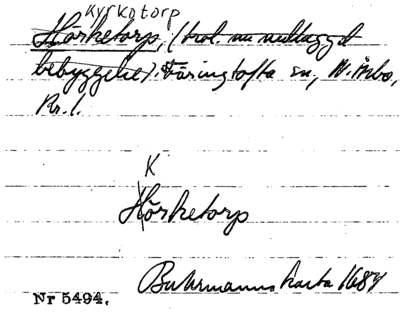 Kyrkotorp
Hörketorp, (trol. nu nedlaggd
bebyggelse). Färingtofta sn, N. Åsbo,
Kr. l.
K
Hörketorp
Buhrmanns karta 1684
Nr 5494.